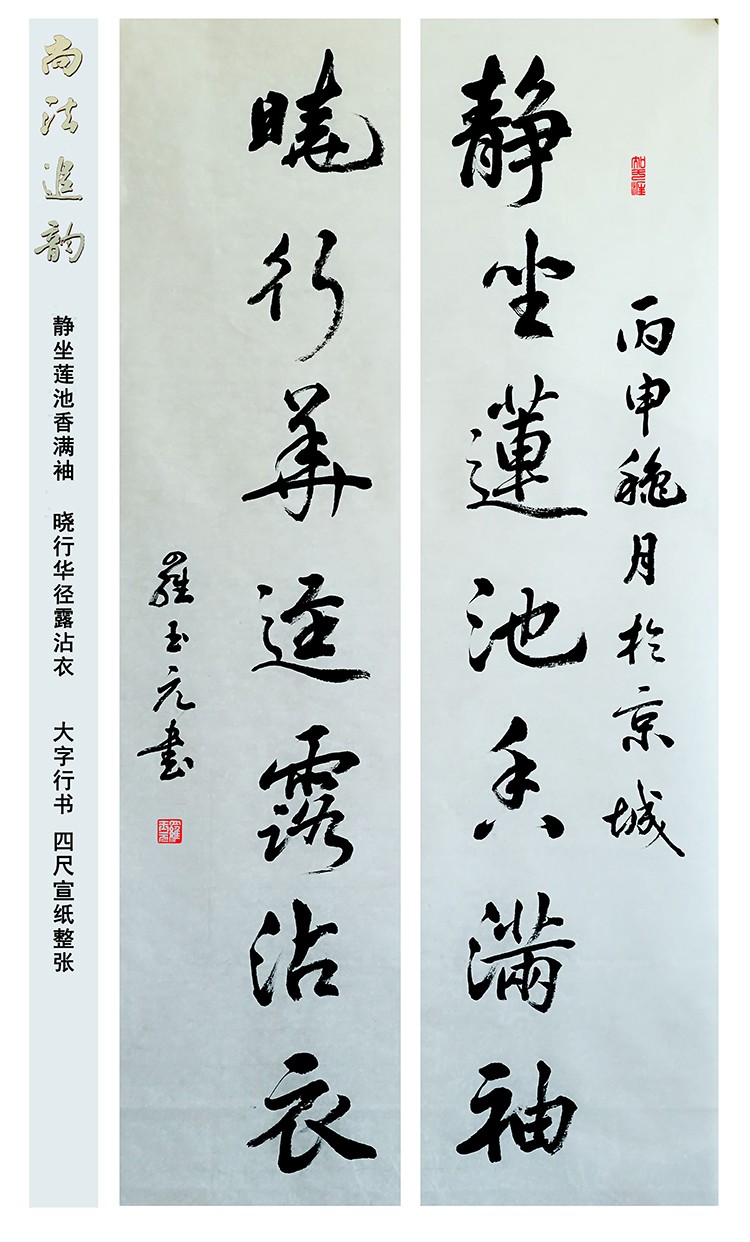 尚法追韵
静坐莲池香满袖 晓行华径露沾衣 大字行书 四尺宣纸整张
丙申穐月於京城
静坐蓮池香滿袖
曉行華逕露沾衣
羅玉元書